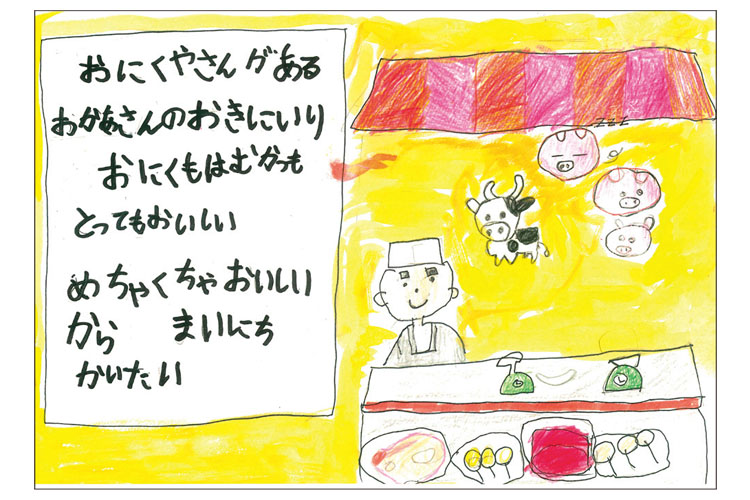 おにくやさんがある
おかあさんのおきにいり
おにくもはむかつも
とってもおいしい
めちゃくちゃおいしい
から まいにち
かいたい
zzz